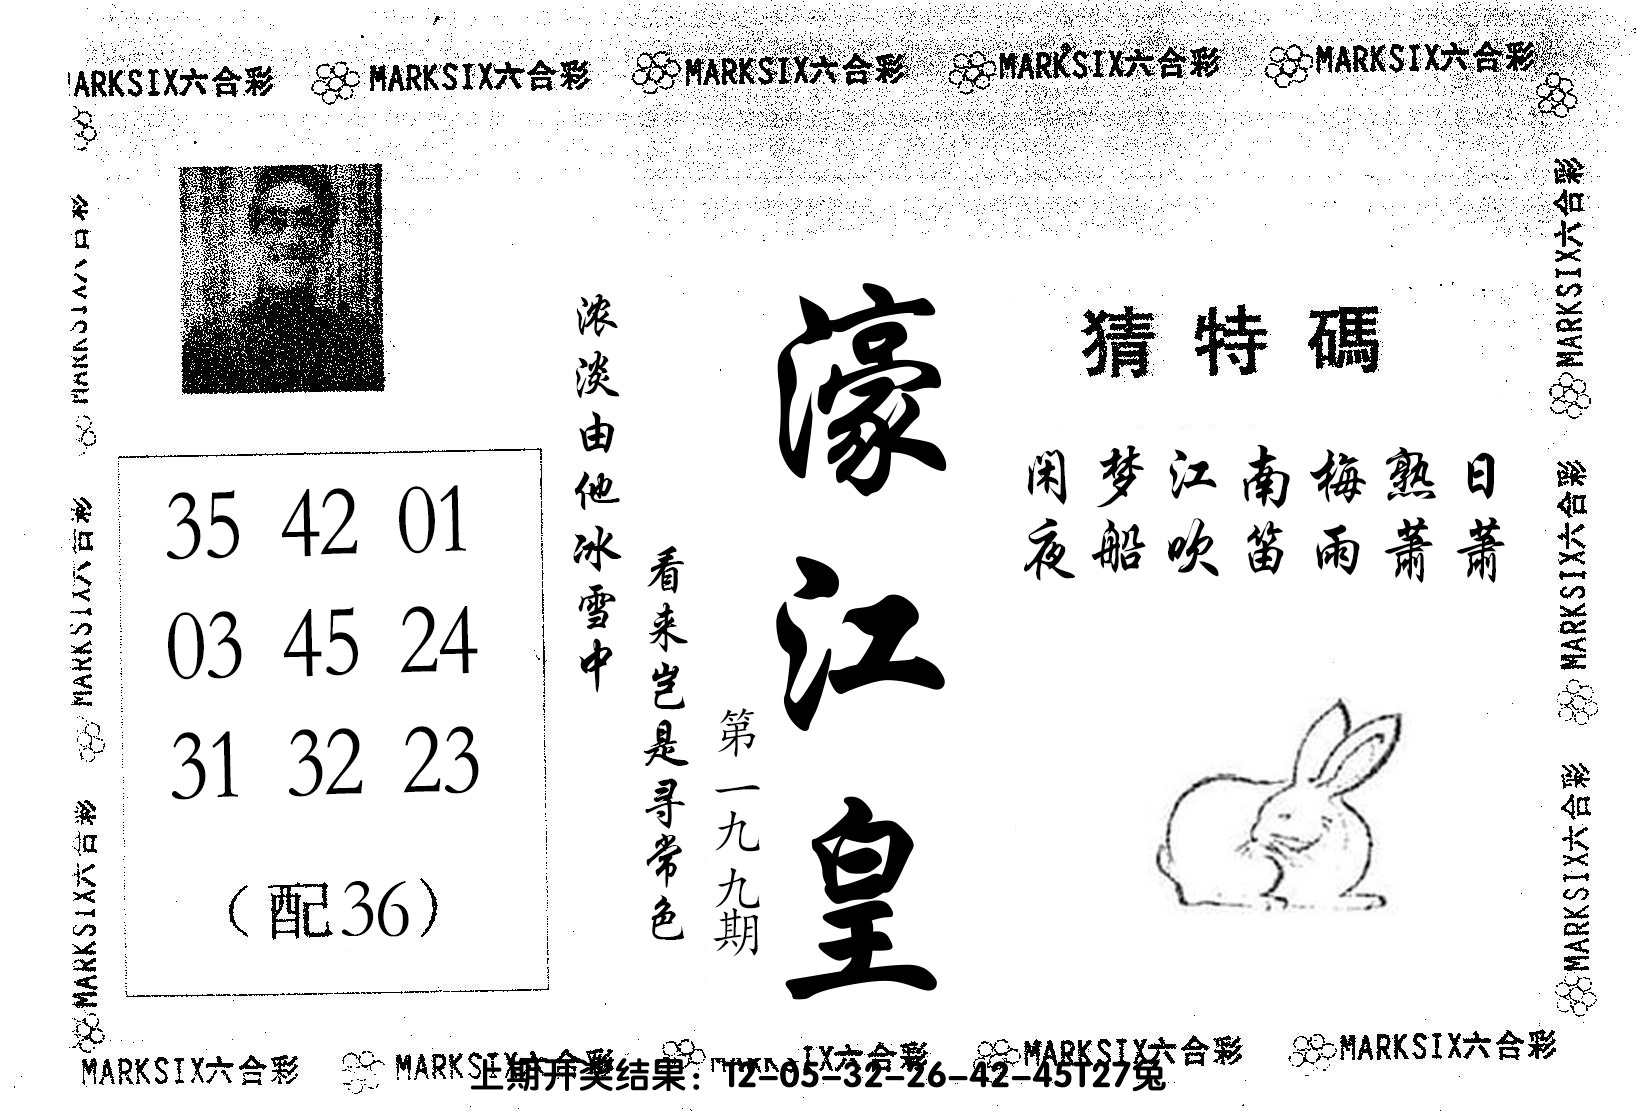 MARKSIX六合彩 MARKSIX六合彩 MARKSIX六合彩 MARKSIX六合彩
MARKSIX六合彩
MARKSIX六合彩
MARKSIX六合彩
35 42 01
03 45 24
31 32 23
（配36）
浓淡由他冰雪中
看来岂是寻常色
第一九九期
濠江皇
猜特碼
闲梦江南梅熟日
夜船吹笛雨萧萧
MARKSIX六合彩
MARKSIX六合彩
MARKSIX六合彩
MARKSIX六合彩 MARKSIX六合彩 MARKSIX六合彩 MARKSIX六合彩
上期开奖结果：12-05-32-26-42-45T27兔